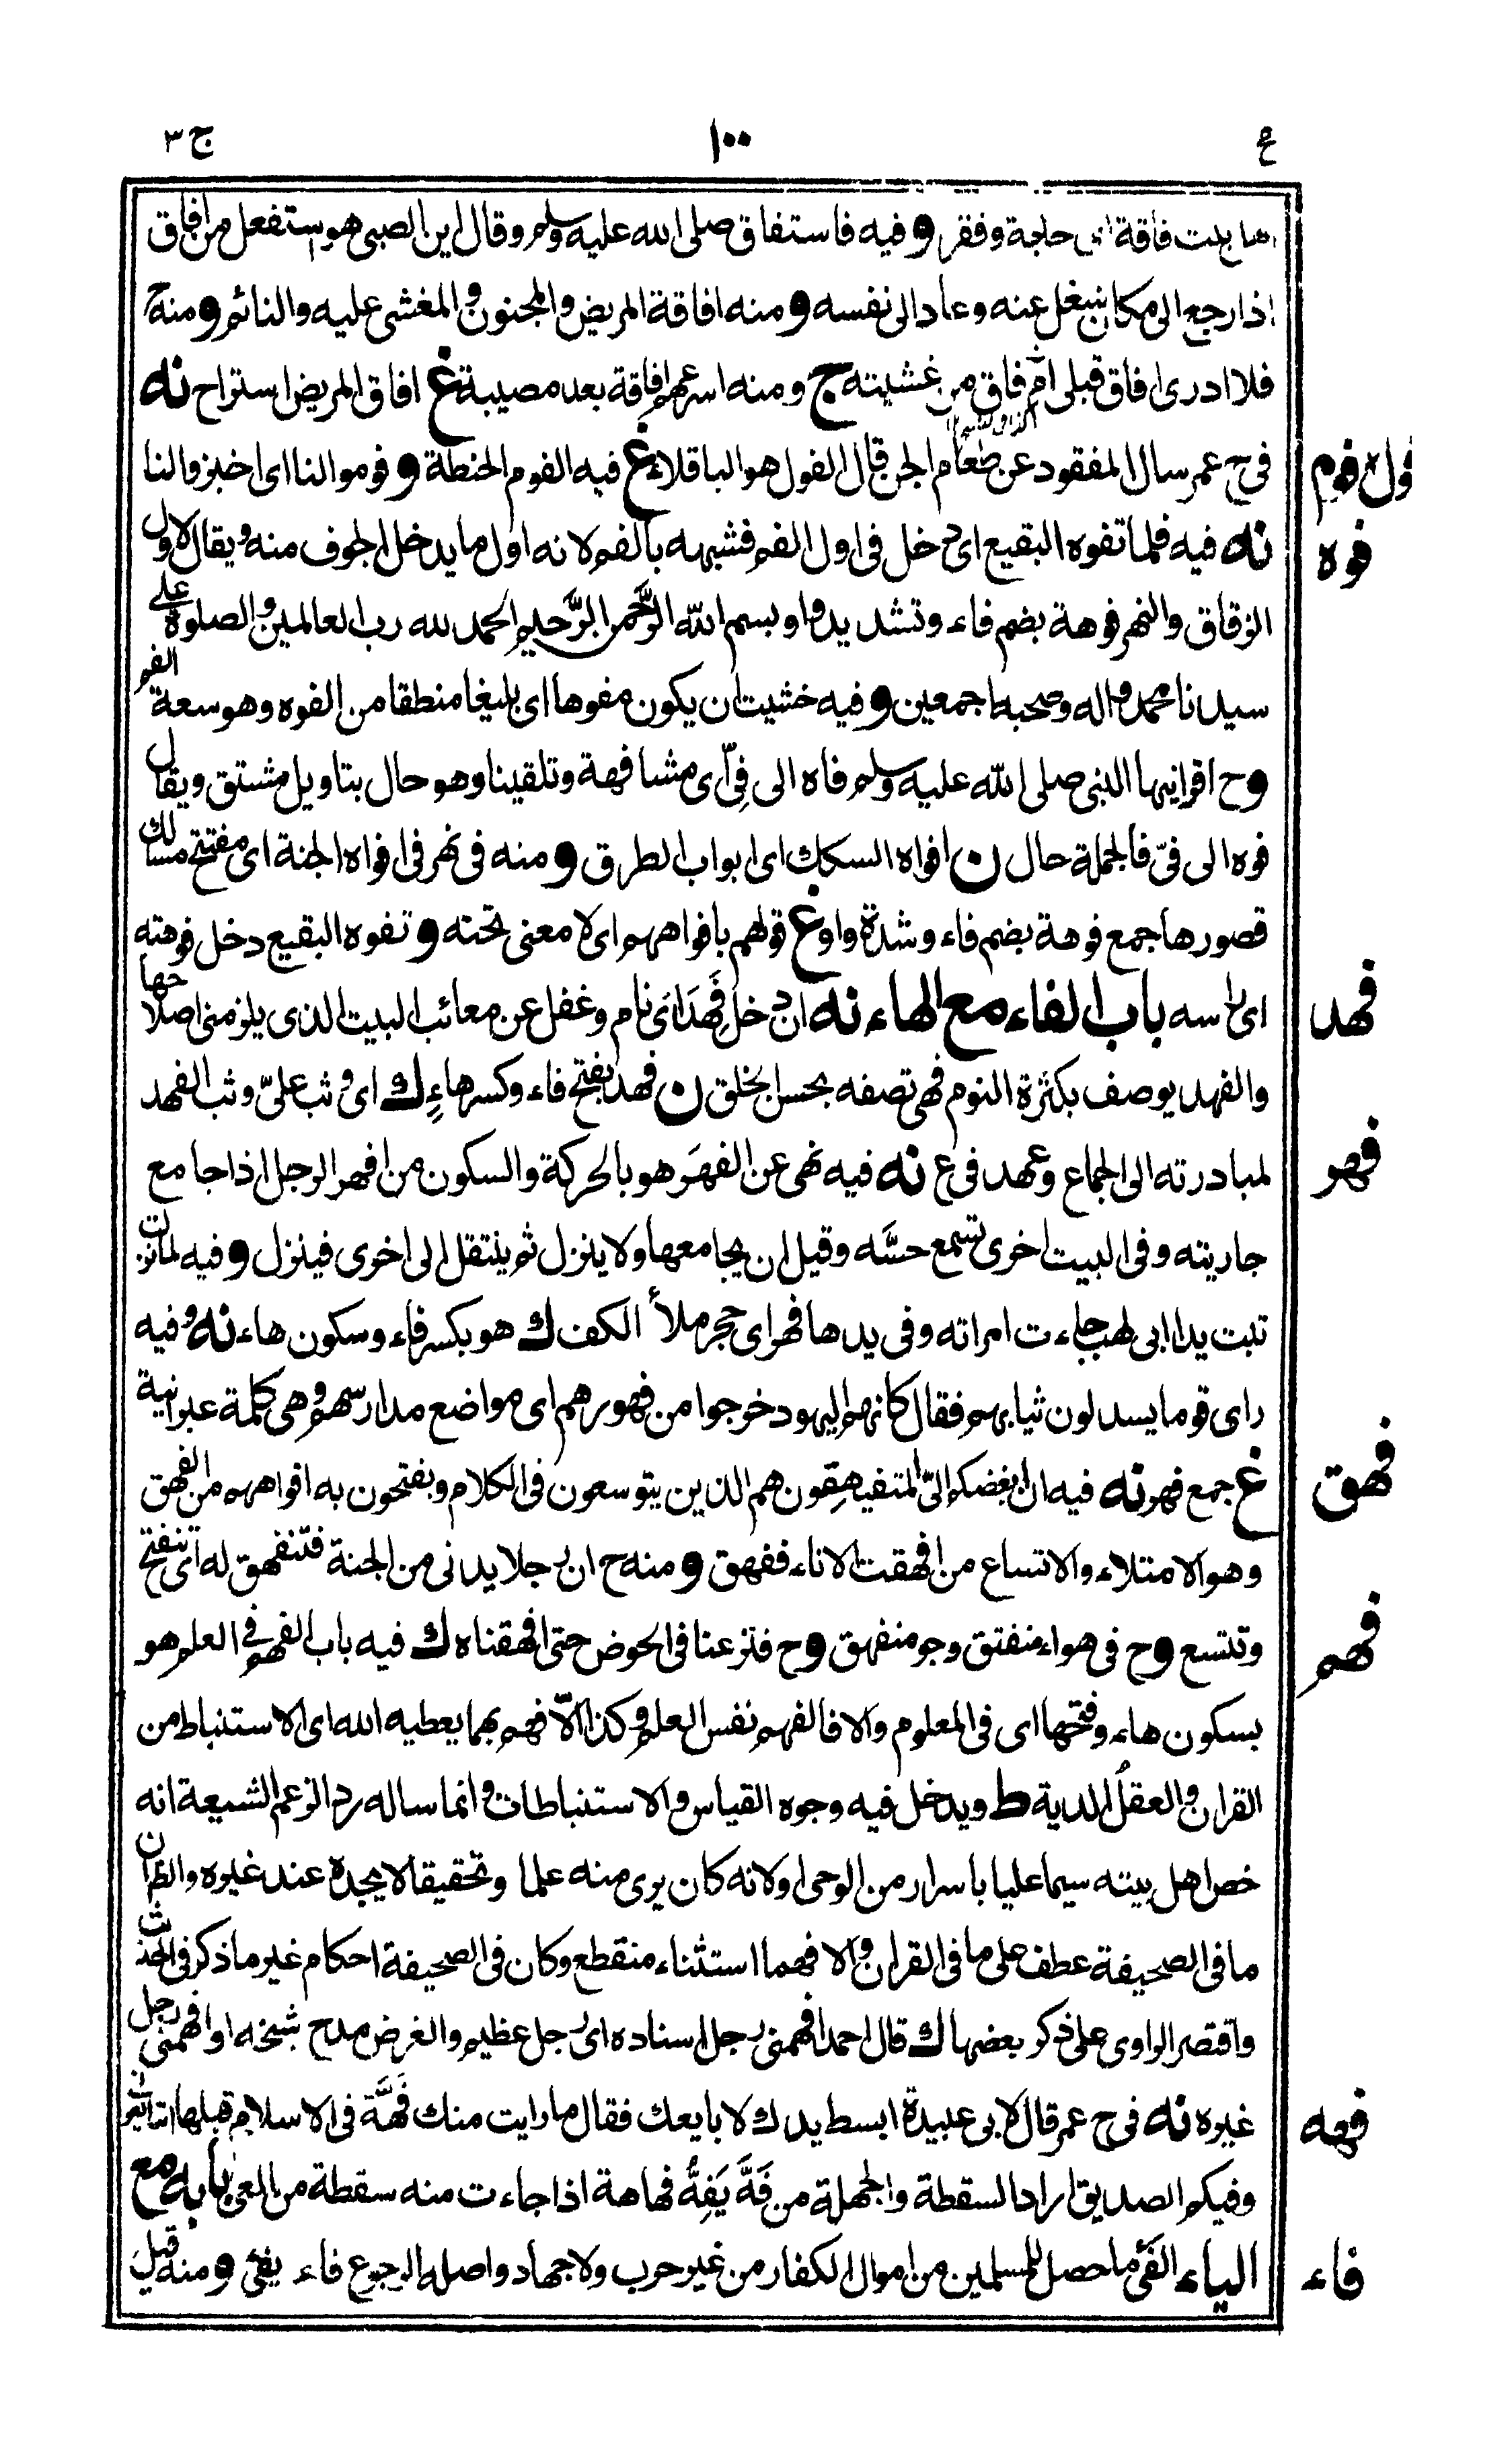 ج ٣
١٠٠
اهل بيت فاقة اي حاجة وفقر و فيه فاستفاق صلى الله عليه وسلم وقال اين الصبى هو استفعل من افاق
اذا رجع الى ما كان شغل عنه وعاد الى نفسه و منه افاقة المريض والمجنون والمغشى عليه والنائم و منه ح
فلا ادرى افاق قبلى ام فاق من غشيته ج ومنه اسرعهم افاقة بعد مصيبة غ افاق المريض استراح نه
فول فوم
فى ح عمر سال المفقود عن طعام الجن قال الفول هو الباقلاء غ فيه الفوم الحنطة و فوموا لنا اى اخبزوا لنا
فوه
نه فيه فلما تفوه البقيع اى دخل فى اول الفم فشبهه بالفم لانه اول ما يدخل الجوف منه ويقال لاول
الزقاق والنهر فوهة بضم فاء وتشديد واو بسم الله الرحمن الرحيم الحمد لله رب العالمين والصلوة على
سيدنا محمد واله وصحبه اجمعين و فيه خشيت ان يكون مفوها اى بليغا منطقا من الفوه وهو سعة الفم
و ح اقرانيها النبى صلى الله عليه وسلم فاه الى فىّ اى مشافهة وتلقينا وهو حال بتاويل مشتق ويقال
فوه الى فىّ فالجملة حال ن افواه السكك اى ابواب الطرق و منه فى نهر فى افواه الجنة اى مفتتح مسالك
قصورها جمع فوهة بضم فاء وشدة واو غ قولهم بافواههم اى لا معنى تحته و تفوه البقيع دخل فوهته
فهد
اى راسه باب الفاء مع الهاء نه ان دخل فَهِدَ اى نام وغفل عن معائب البيت الذى يلزمنى اصلاحها
والفهد يوصف بكثرة النوم فهى تصفه بحسن الخلق ن فهد بفتح فاء وكسر هاءِ ك اى وثب علىّ وثب الفهد
فهر
لمبادرته الى الجماع وعهد فى ع نه فيه نهى عن الفهَر هو بالحركة والسكون من افهر الرجل اذا جامع
جاريته وفى البيت اخرى تسمع حسَّه وقيل ان يجامعها ولا ينزل ثم ينتقل الى اخرى فينزل و فيه لما نزلت
تبت يدا ابى لهب جاءت امراته وفى يدها فهر اى حجر ملأ الكف ك هو بكسر فاء وسكون هاء نه و فيه
راى قوما يسدلون ثيابهم فقال كانهم اليهود خرجوا من فهورهم اى مواضع مدارسهم وهى كلمة عبرانية
فهق
غ جمع فهر نه فيه ان ابغضكم الىّ المتفيهِقون هم الذين يتوسعون فى الكلام ويفتحون به افواههم من الفهق
وهو الامتلاء والاتساع من افهقت الاناء ففهق و منه ح ان رجلا يدنى من الجنة فتنفهق له اى تنفتح
فهم
وتتسع و ح فى هواء منفتق وجو منفهق و ح فنزعنا فى الحوض حتى افهقناه ك فيه باب الفهم فى العلم هو
بسكون هاء وفتحها اى فى المعلوم والا فالفهم نفس العلم وكذا الا فهم بما يعطيه الله اى الاستنباط من
القران والعقلُ الدية ط ويدخل فيه وجوه القياس والاستنباطات وانما ساله رد الزعم الشيعة انه
خص اهل بيته سيما عليا باسرار من الوحى او لانه كان يرى منه علما وتحقيقا لا يجده عند غيره والظاهر ان
ما فى الصحيفة عطف على ما فى القران والا فهما استثناء منقطع وكان فى الصحيفة احكام غير ما ذكر فى الحديث
واقتصر الراوى على ذكر بعضها ك قال احمد افهمنى رجل اسناده اى رجل عظيم والغرض مدح شيخه او افهمنى رجل
فهه
غيره نه فى ح عمر قال لابى عبيدة ابسط يدك لابايعك فقال ما رايت منك فَهَّة فى الاسلام قبلها
وفيكم الصديق اراد السقطة والجهلة من فَهَّ يَفِهُّ فهاهة اذا جاءت منه سقطة من العى بابه مع
فاء
الياء الفئ ما حصل للمسلمين من اموال الكفار من غير حرب ولا جهاد واصله الرجوع فاء يفئ و منه قيل